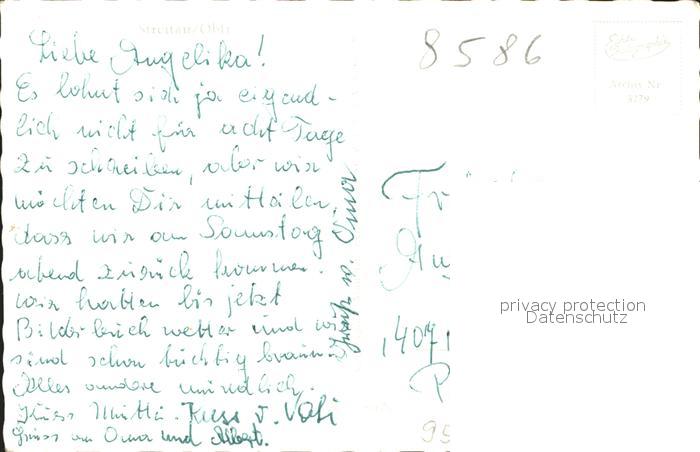 Streitau/Obfr.
Liebe Angelika!
Es lohnt sich ja eigend-
lich nicht für acht Tage
zu schreiben, aber wir
möchten Dir mitteilen,
dass wir am Sonnstag
abend zurück kommen.
wir hatten bis jetzt
Bilderbuch wetter und wir
sind schon tüchtig braun.
Alles andere mündlich.
Kuss Mutti. Kuss v. Vati
Gruss an Oma und Albert.
Gruss v. Oma
8586
Echte Fotographie
Archiv Nr.
3279
Fr
An
407
privacy protection
Datenschutz
95